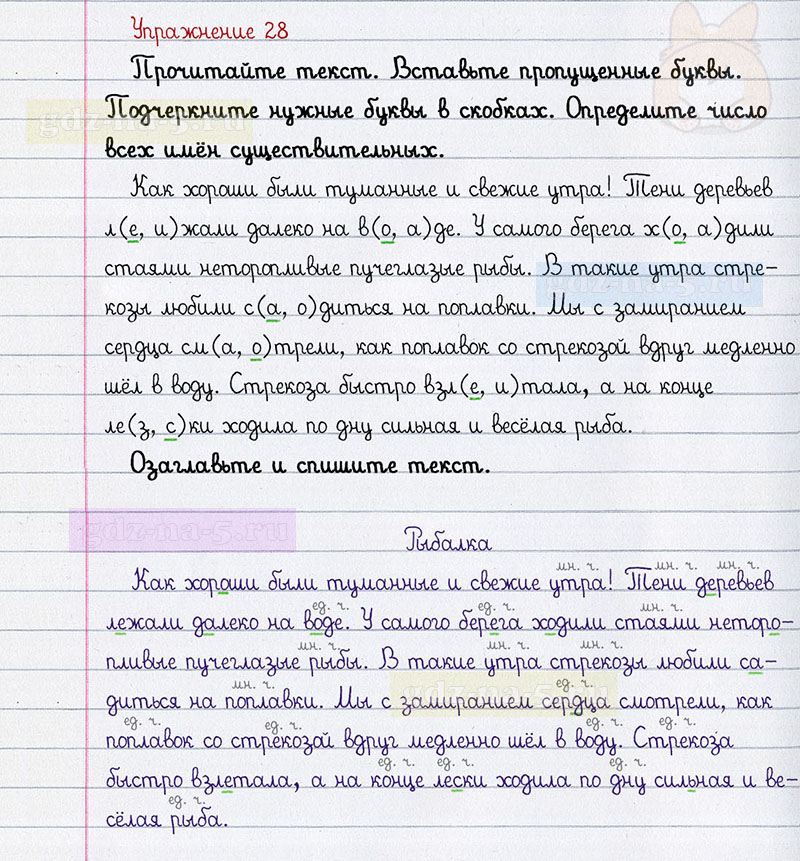 Упражнение 28
Прочитайте текст. Вставьте пропущенные буквы.
Подчеркните нужные буквы в скобках. Определите число
gdz-na-5.ru
всех имён существительных.
Как хороши были туманные и свежие утра! Тени деревьев
л(е, и)жали далеко на в(о, а)де. У самого берега х(о, а)дили
стаями неторопливые пучеглазые рыбы. В такие утра стре-
gdz-na-5.ru
козы любили с(а, о)диться на поплавки. Мы с замиранием
сердца см(а, о)трели, как поплавок со стрекозой вдруг медленно
шёл в воду. Стрекоза быстро взл(е, и)тала, а на конце
ле(з, с)ки ходила по дну сильная и весёлая рыба.
Озаглавьте и спишите текст.
gdz-na-5.ru
Рыбалка
мн. ч. мн. ч. мн. ч.
Как хороши были туманные и свежие утра! Тени деревьев
ед. ч. ед. ч. мн. ч.
лежали далеко на воде. У самого берега ходили стаями неторо-
мн. ч. мн. ч. мн. ч.
пливые пучеглазые рыбы. В такие утра стрекозы любили са-
мн. ч. ед. ч.
диться на поплавки. Мы с замиранием сердца смотрели, как
gdz-na-5.ru
ед. ч. ед. ч. ед. ч. ед. ч.
поплавок со стрекозой вдруг медленно шёл в воду. Стрекоза
ед. ч. ед. ч. ед. ч.
быстро взлетала, а на конце лески ходила по дну сильная и ве-
ед. ч.
сёлая рыба.